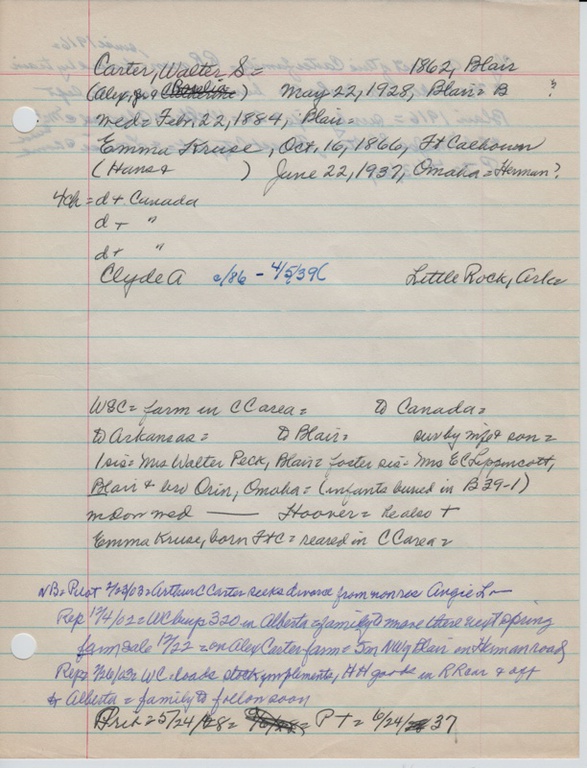 Carter, Walter S = 1862, Blair
(Alex, jr & Rosalia) May 22, 1928, Blair = B ?
med = Feb, 22, 1884, Blair =
Emma Kruse, Oct, 16, 1866, Ft Calhoun
(Hans & ) June 22, 1937, Omaha = Herman?
4ch = d + Canada
d + "
d + "
Clyde A c/86 - 4/5/39( Little Rock, Ark
WSC = farm in CC area = to Canada =
to Arkansas = to Blair = surv by wife & son =
1 sis = Mrs Walter Peck, Blair = foster sis = Mrs EC Lippincott,
Blair & bro Orin, Omaha = (infants buried in B 39-1)
mdon med —— Hoover = he also +
Emma Kruse, born Ft C = reared in CC area =
NB = Pilot 7/23/03 = Arthur C Carter seeks divorce from non res Angie L -
Rep 12/4/02 = WC buys 320 in Alberta = family to move there next spring
farm sale 12/22 = on Alex Carter farm = 5 m NW of Blair on Herman road
Rep = 2/26/03 = WC loads stock implements, HH goods in RR car & off
to Alberta = family to follow soon
5/24/28 = PT = 6/24/37